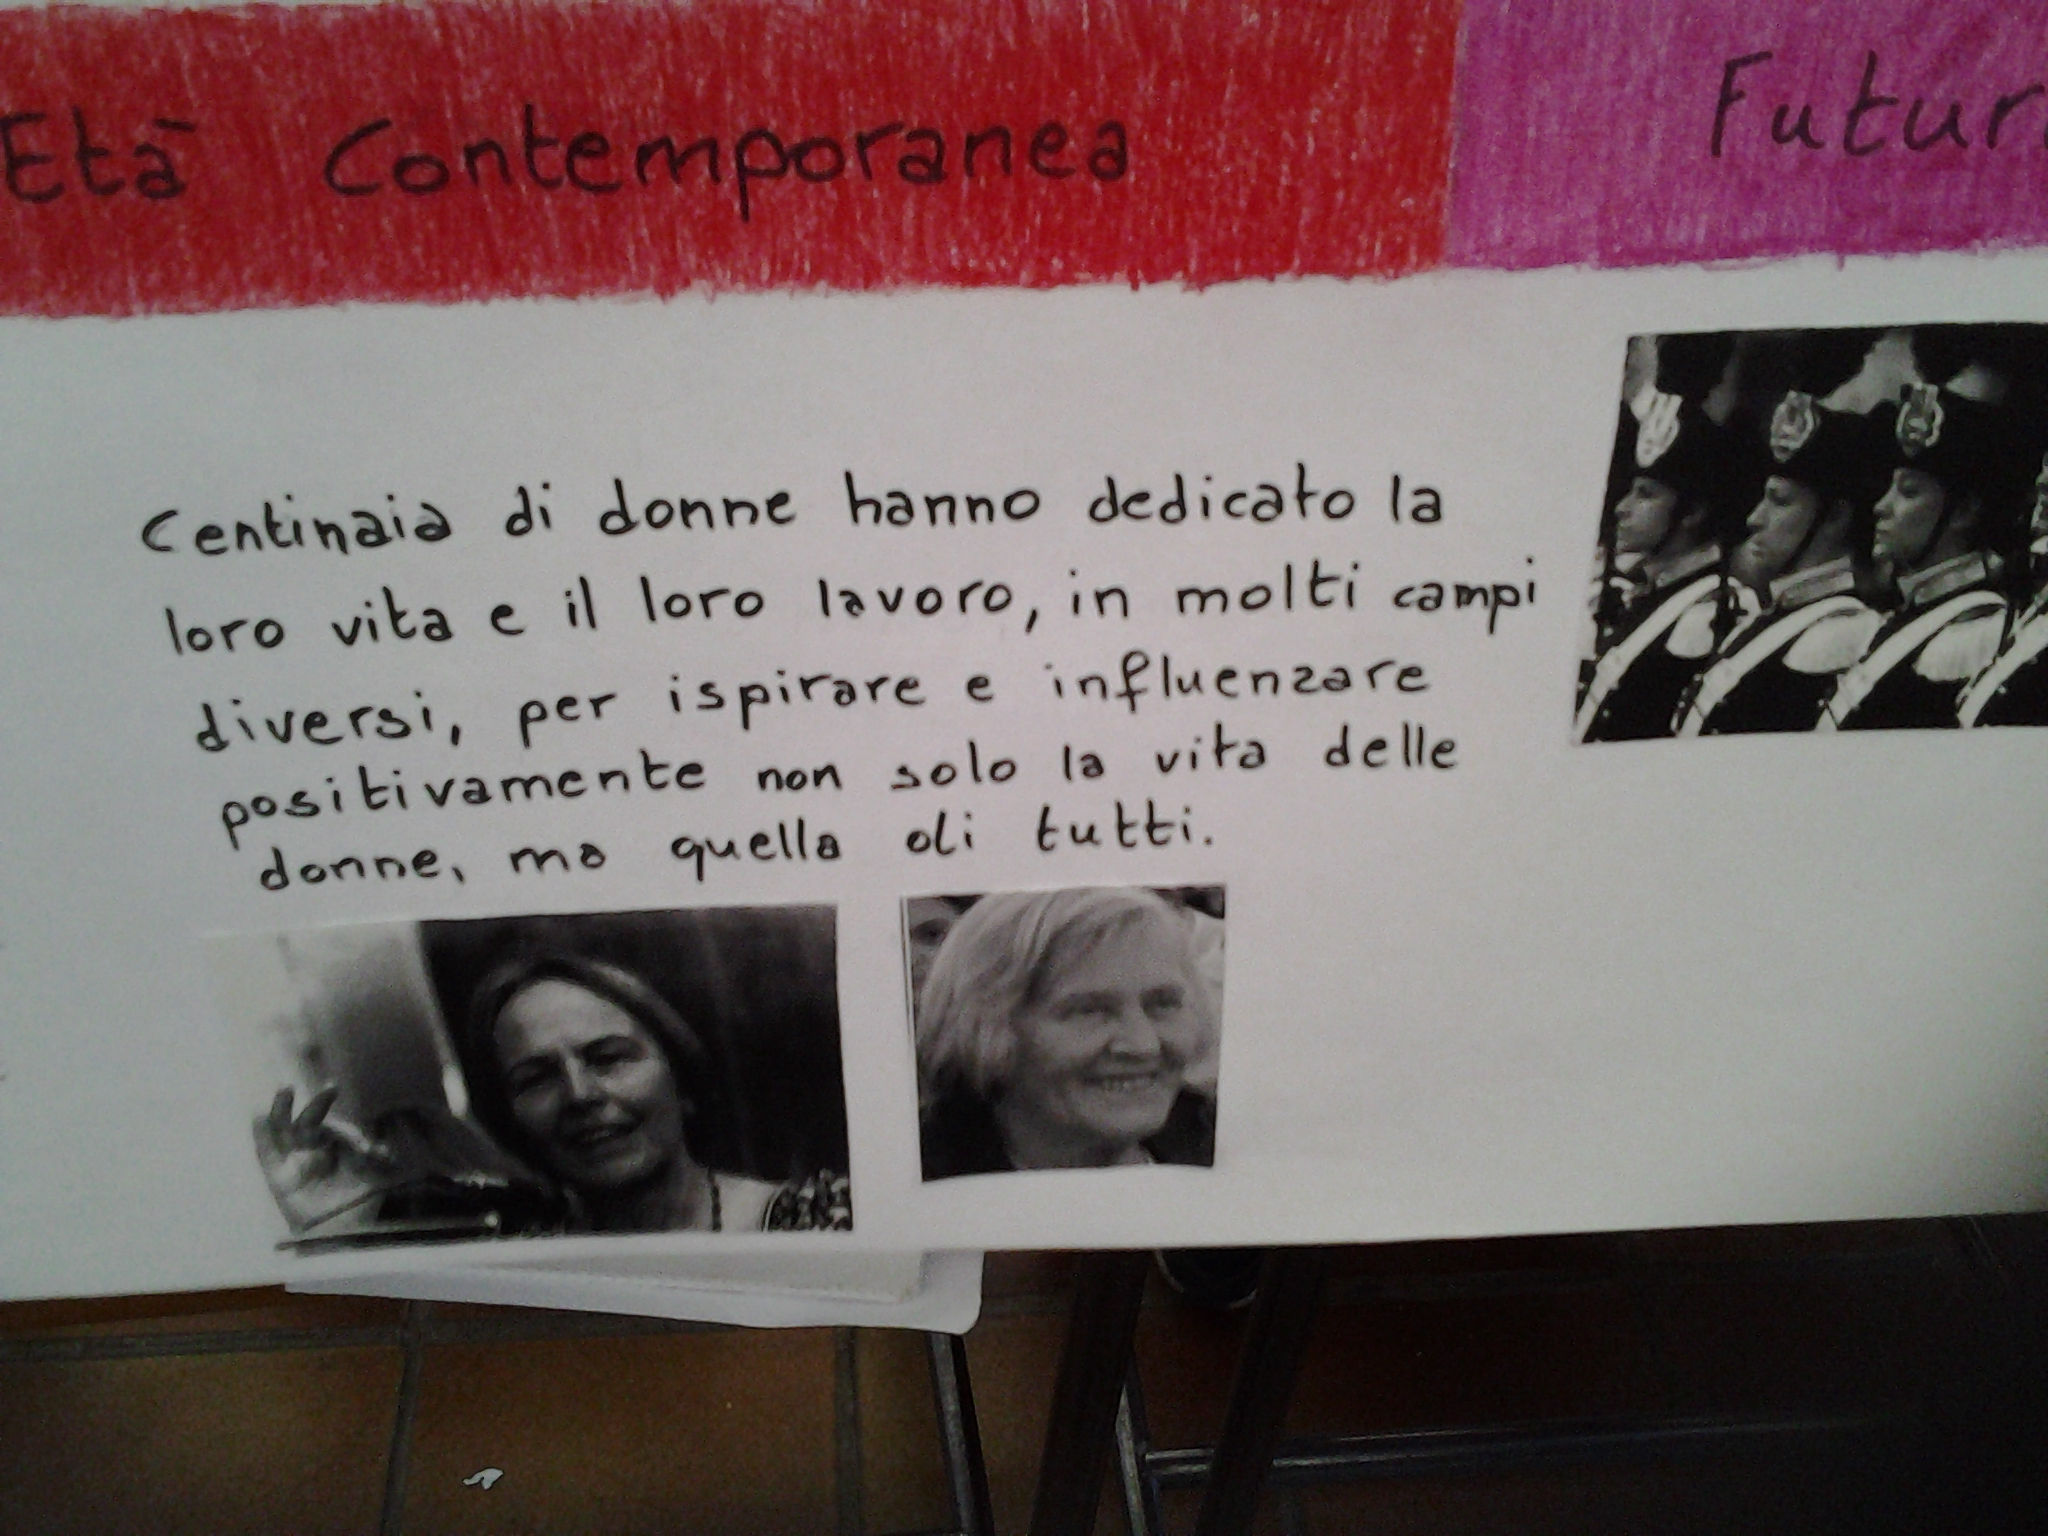 Età Contemporanea
Futur
Centinaia di donne hanno dedicato la
loro vita e il loro lavoro, in molti campi
diversi, per ispirare e influenzare
positivamente non solo la vita delle
donne, ma quella di tutti.